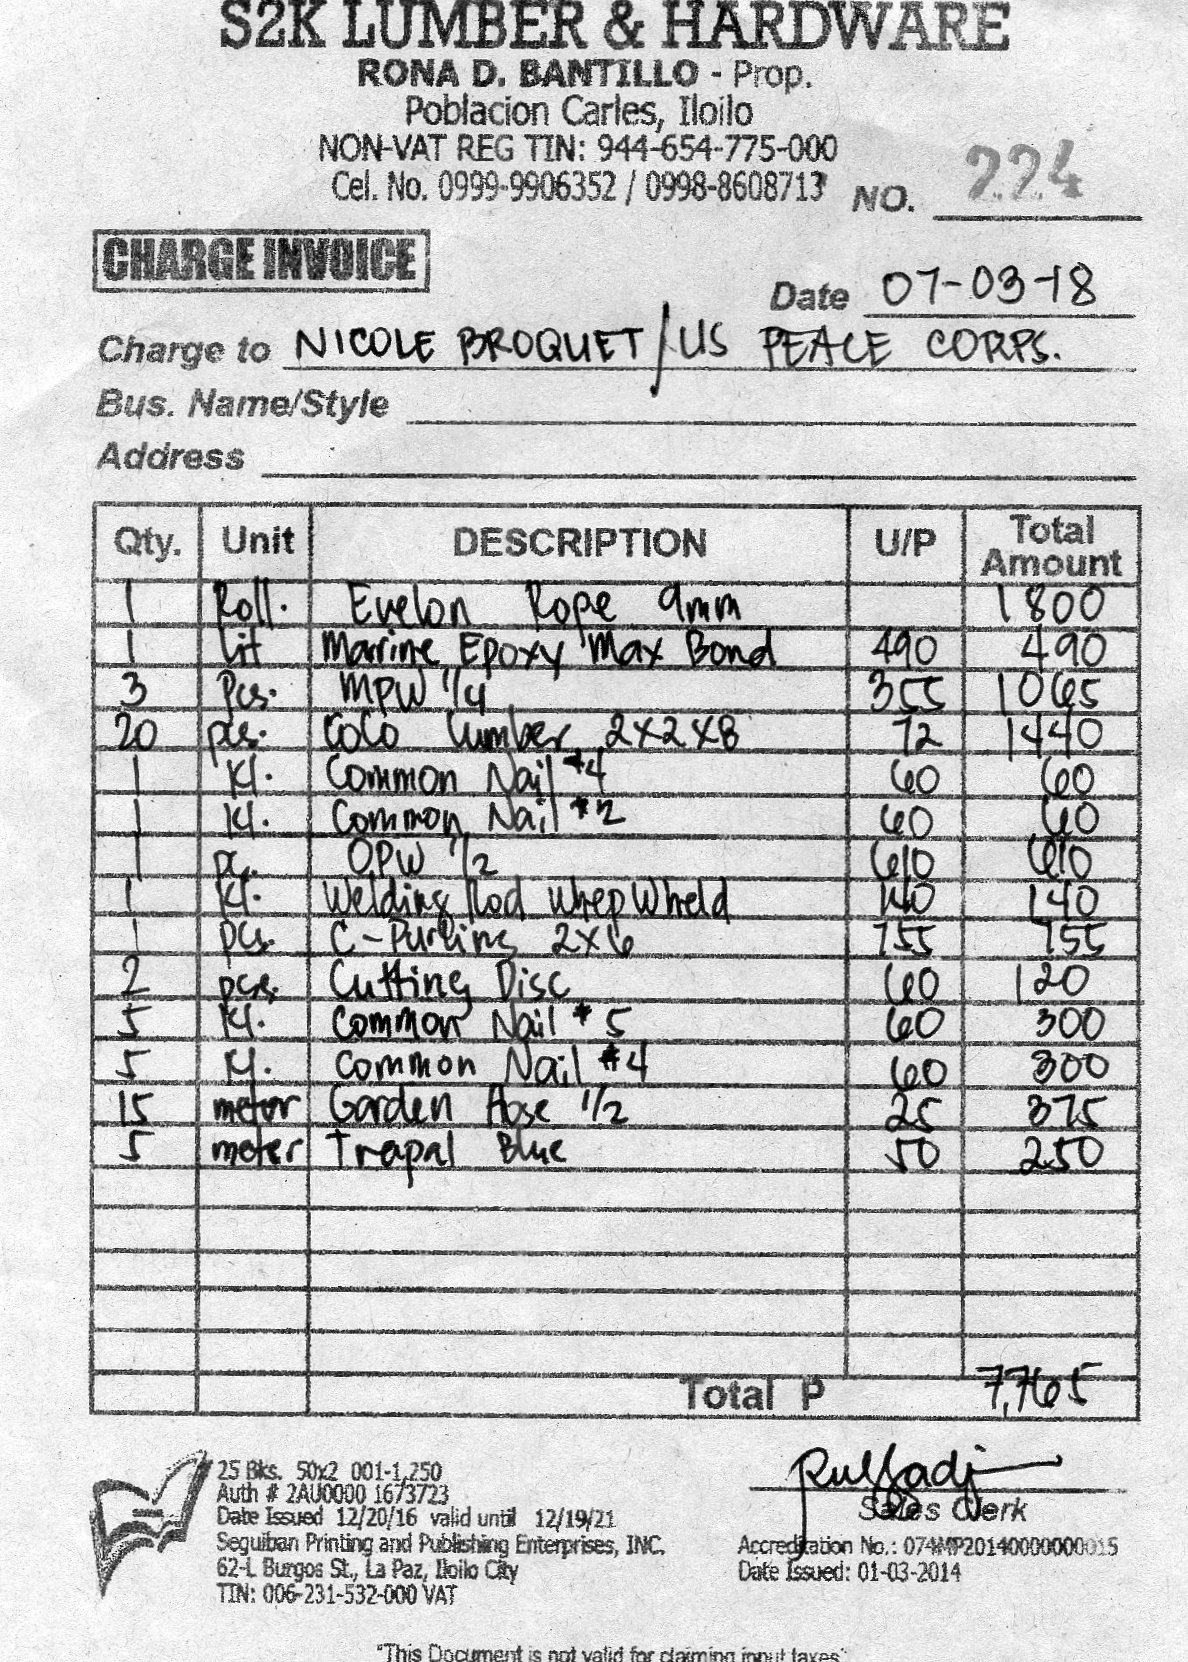 S2K LUMBER & HARDWARE
RONA D. BANTILLO - Prop.
Poblacion Carles, Iloilo
NON-VAT REG TIN: 944-654-775-000
Cel. No. 0999-9906352 / 0998-8608713
NO. 224
CHARGE INVOICE
Date 07-03-18
Charge to NICOLE BROQUET / US PEACE CORPS.
Bus. Name/Style
Address
Qty. Unit DESCRIPTION U/P Total Amount
1 Roll. Evelon Rope 9mm 1800
1 Lit Marine Epoxy Max Bond 490 490
3 Pcs. MPW 1/4 355 1065
20 pcs. CoCo lumber 2x2x8 72 1440
1 Kl. Common Nail #4 60 60
1 Kl. Common Nail #2 60 60
1 pc. OPW 1/2 610 610
1 Kl. Welding Rod WhepWheld 140 140
1 pcs. C-Purling 2x6 755 755
2 pcs. Cutting Disc 60 120
5 Kl. Common Nail #5 60 300
5 Kl. Common Nail #4 60 300
15 meter Garden Hose 1/2 25 375
5 meter Trapal Blue 50 250
Total P 7,765
25 Bks. 50x2 001-1,250
Auth # 2AU0000 1673723
Date Issued 12/20/16 valid until 12/19/21
Seguiban Printing and Publishing Enterprises, INC.
62-L Burgos St., La Paz, Iloilo City
TIN: 006-231-532-000 VAT
Sales Clerk
Accreditation No.: 074MP20140000000015
Date Issued: 01-03-2014
"This Document is not valid for claiming input taxes"